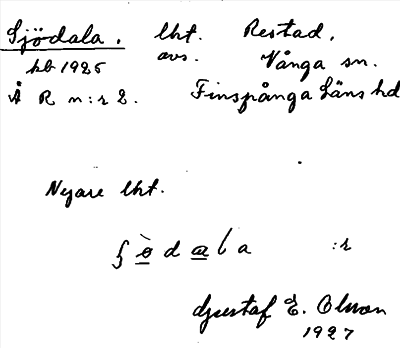 Sjödala. lht. Restad,
kb 1925 avs. Vånga sn.
Å R n:r 2. Finspånga Läns hd
Nyare lht.
ʃ ö̀ d a l a :r
Gustaf E. Olsson
1927